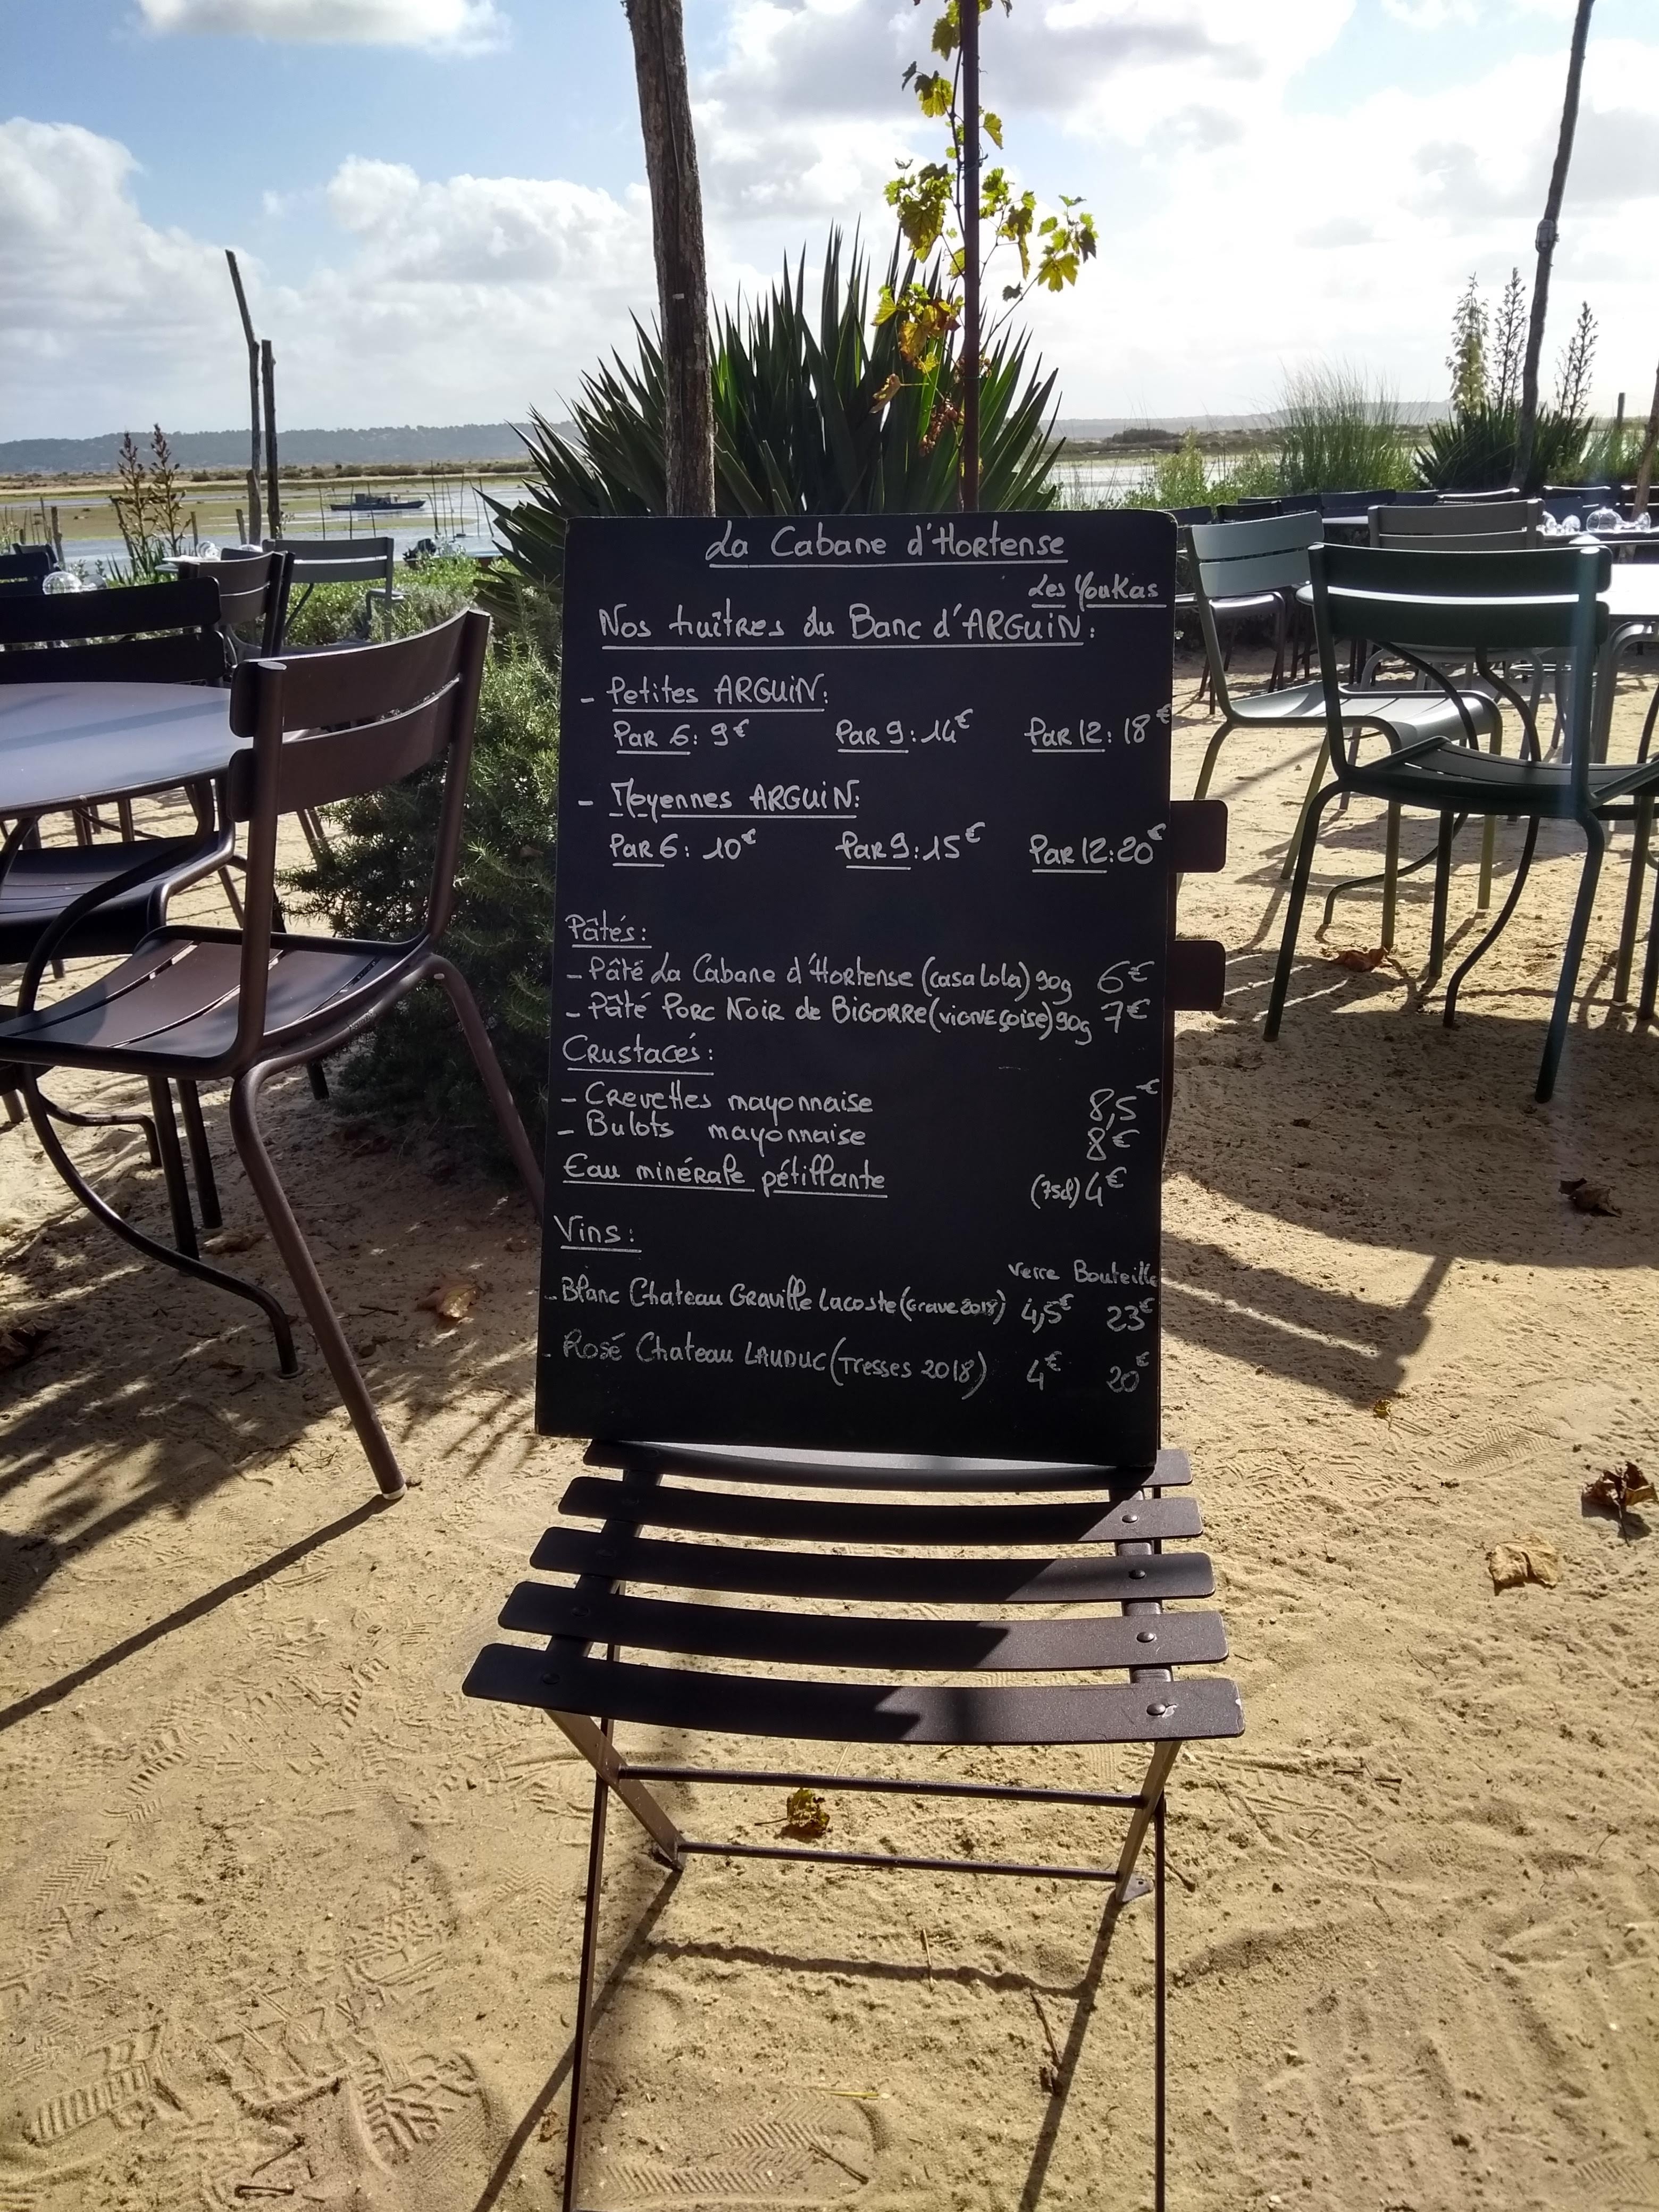 La Cabane d'Hortense
Les Youkas
Nos huîtres du Banc d'ARGUIN:
- Petites ARGUIN:
Par 6: 9€ Par 9: 14€ Par 12: 18€
- Moyennes ARGUIN:
Par 6: 10€ Par 9: 15€ Par 12: 20€
Pâtés:
- Pâté La Cabane d'Hortense (casa Lola) 90g 6€
- Pâté Porc Noir de BIGORRE (vignecoise) 90g 7€
Crustacés:
- Crevettes mayonnaise 8,5€
- Bulots mayonnaise 8€
Eau minérale pétillante (75cl) 4€
Vins:
Verre Bouteille
- Blanc Chateau Graville Lacoste (Grave 2018) 4,5€ 23€
- Rosé Chateau LAUDUC (Tresses 2018) 4€ 20€